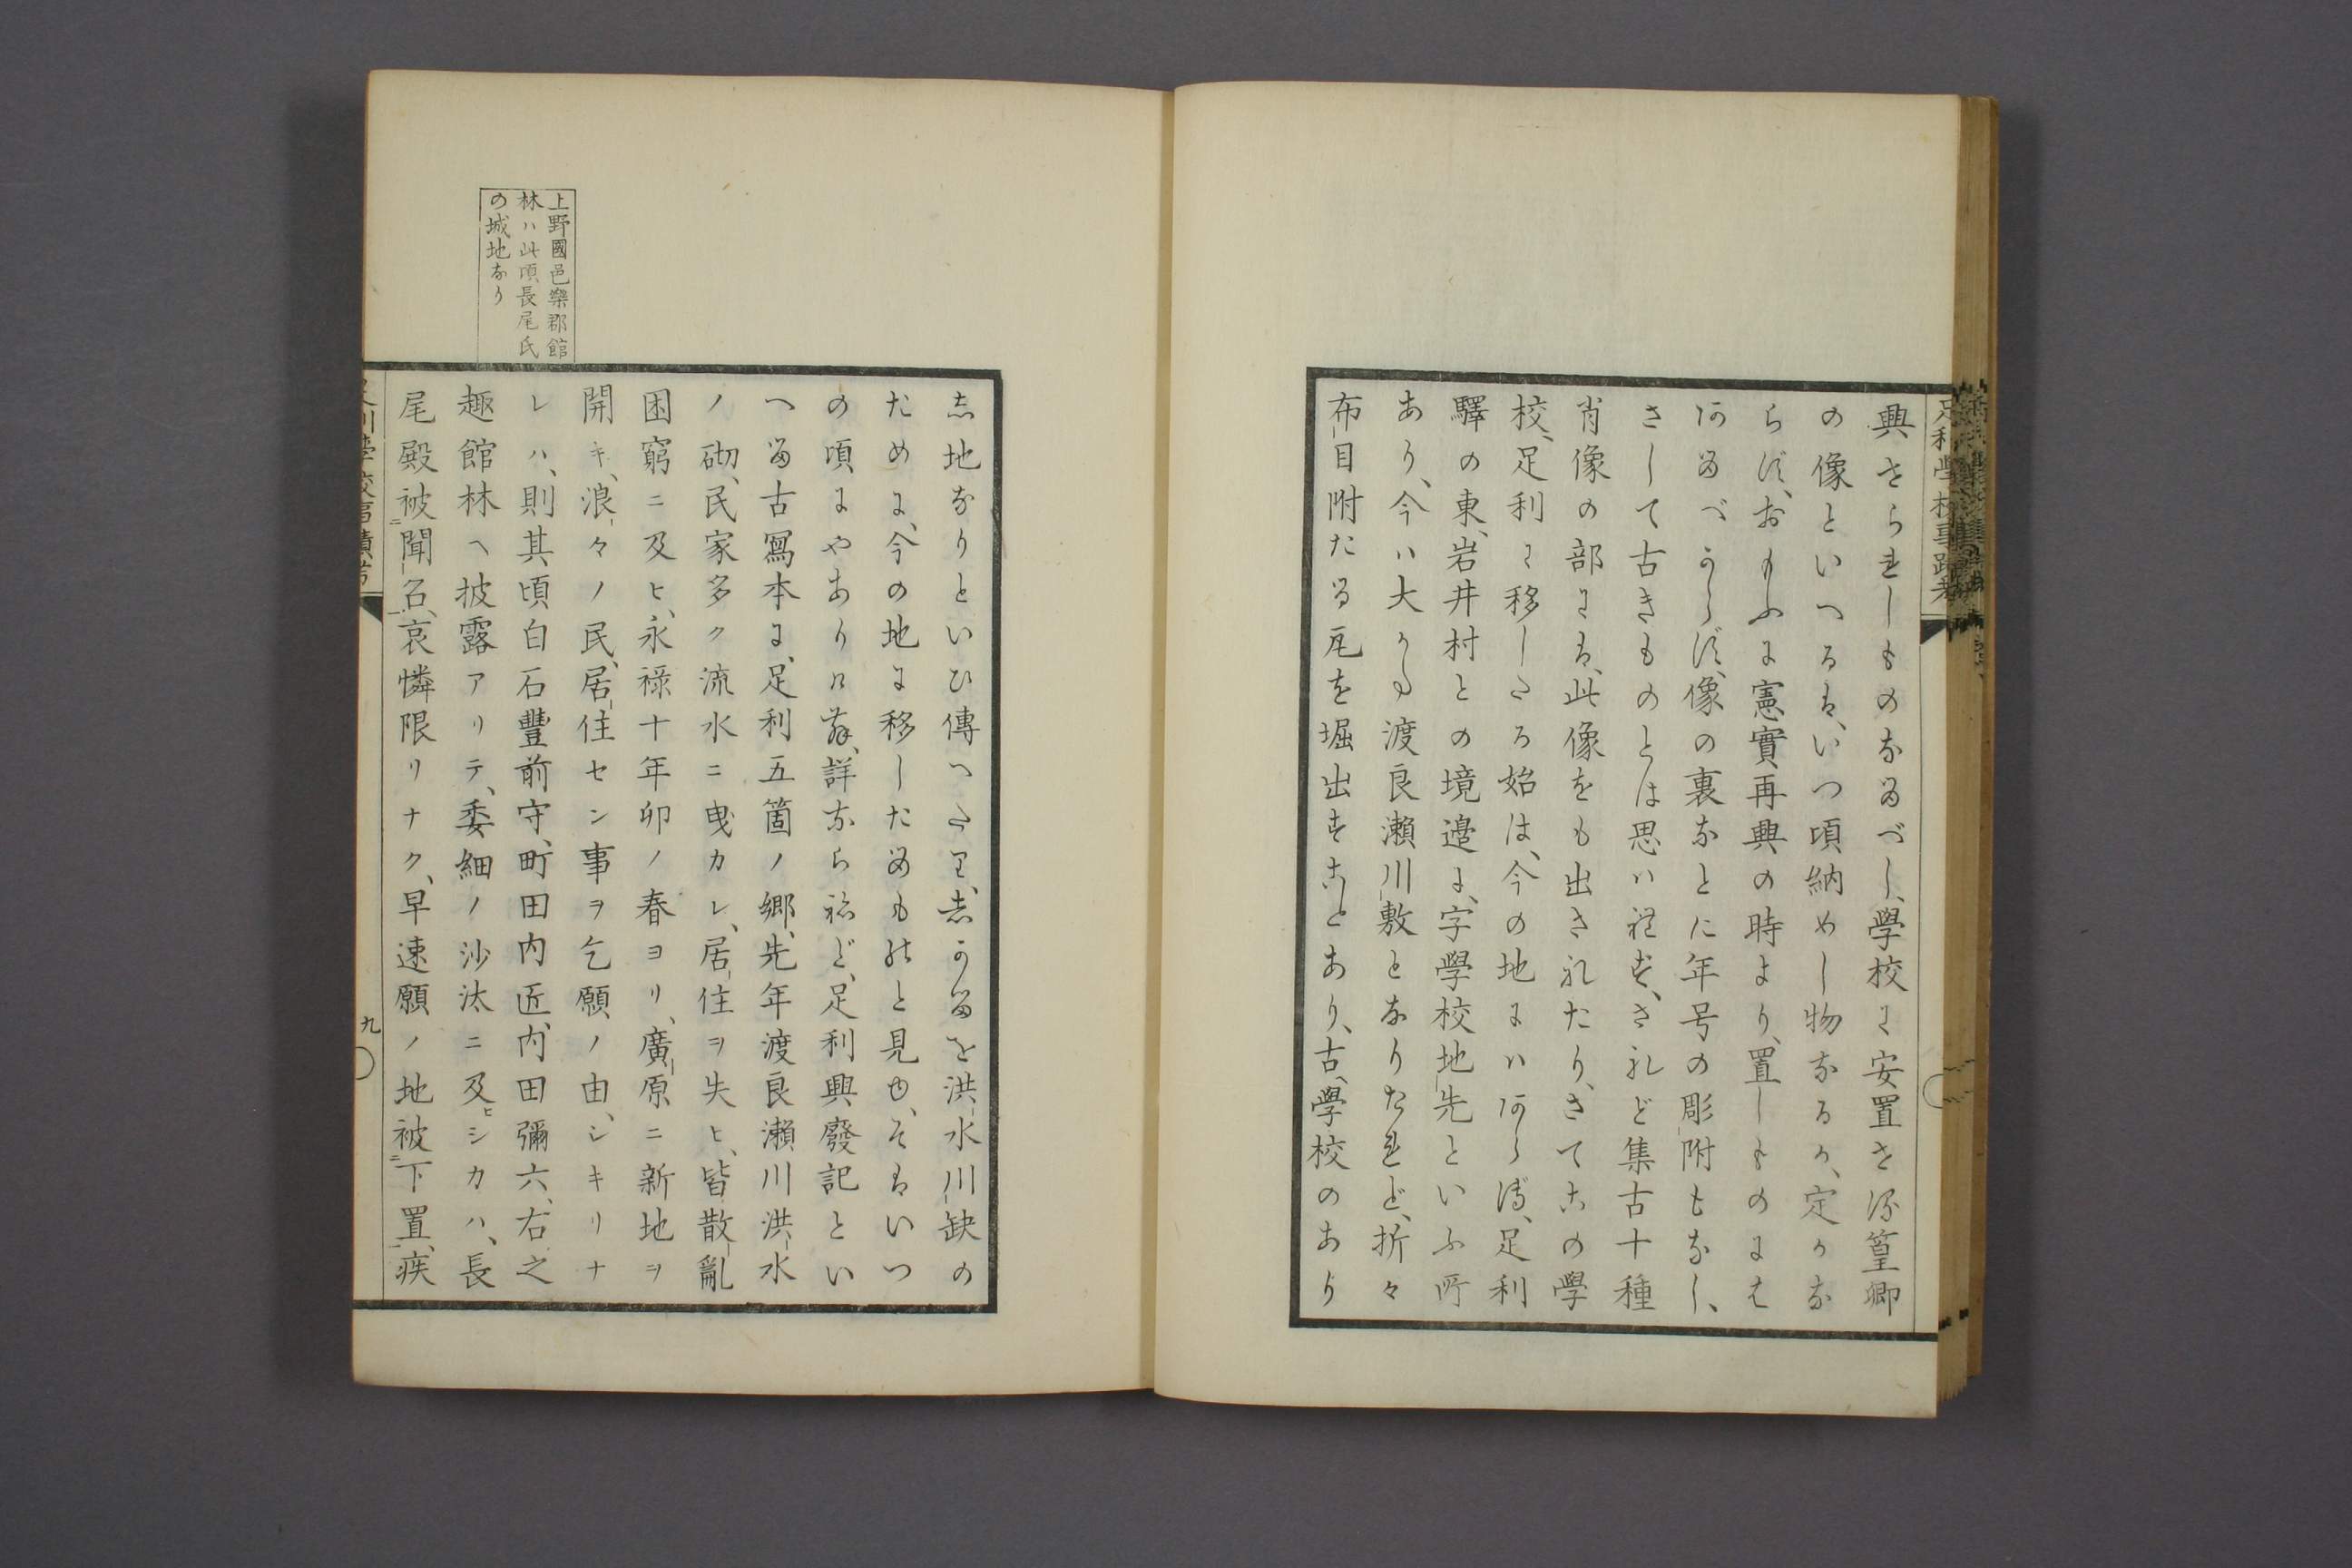 興せられしものなるべし、學校に安置せる篁卿
の像といへるは、いつ頃納めし物なるか、定かな
らず、おもふに憲實再興の時より、置しものには
あるべからず、像の裏なとに年号の彫附もなし、
さして古きものとは思ハれず、されど集古十種
肖像の部には、此像をも出されたり、さてこの學
校、足利に移しゝる始は、今の地にハあらず、足利
驛の東、岩井村との境邉に、字學校地先といふ所
あり、今ハ大かた渡良瀬川敷となりたれど、折々
布目附たる瓦を堀出すことあり、古へ學校のあり
し地なりといひ傳へたり、しかるを洪水川缺の
ために、今の地に移したるものと見ゆ、そはいつ
の頃にやありけむ、詳ならねど、足利興廢記とい
へる古寫本に、足利五箇ノ郷、先年渡良瀬川洪水
ノ砌、民家多ク流水ニ曳カレ、居住ヲ失ヒ、皆散亂
困窮ニ及ヒ、永禄十年卯ノ春ヨリ、廣原ニ新地ヲ
開キ、浪々ノ民、居住セン事ヲ乞願ノ由、シキリナ
レハ、則其頃白石豐前守、町田内匠、内田彌六、右之
趣館林ヘ披露アリテ、委細ノ沙汰ニ及ヒシカハ、長
尾殿被聞召、哀憐限リナク、早速願ノ地被下置、疾
上野國邑樂郡館
林ハ此頃長尾氏
の城地なり
足利學校事蹟考
九